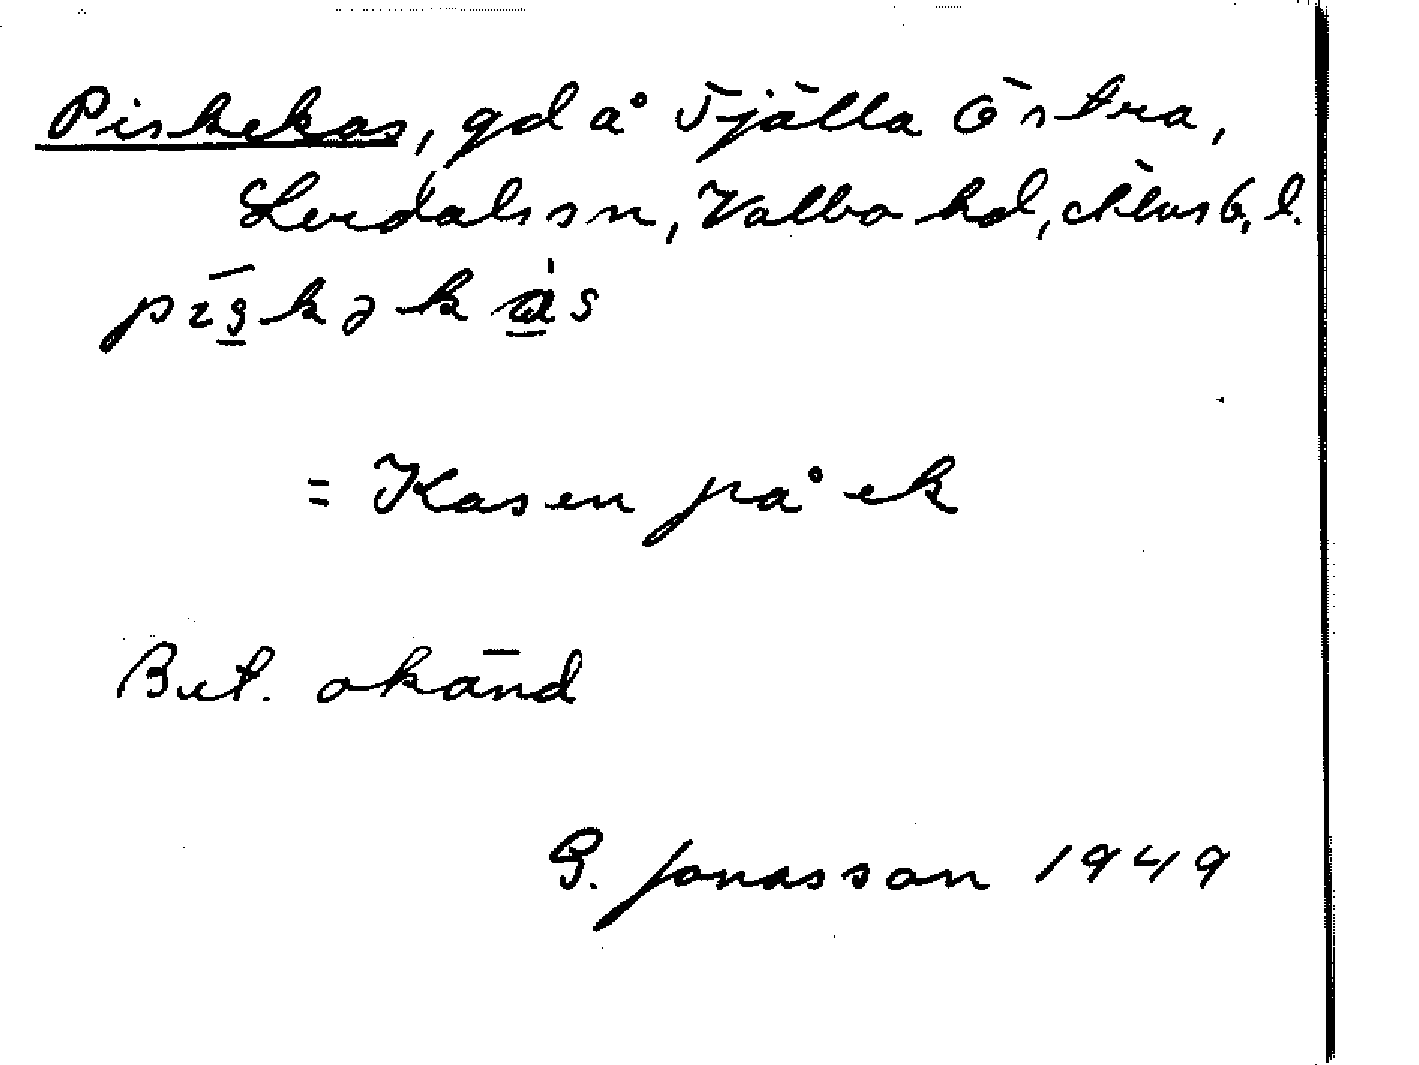 Piskekas, gd å Tjälla Östra,
Lerdals sn, Valbo hd, Älvsb. l.
= Kasen på ek
Bet. okänd
G. Jonasson 1949